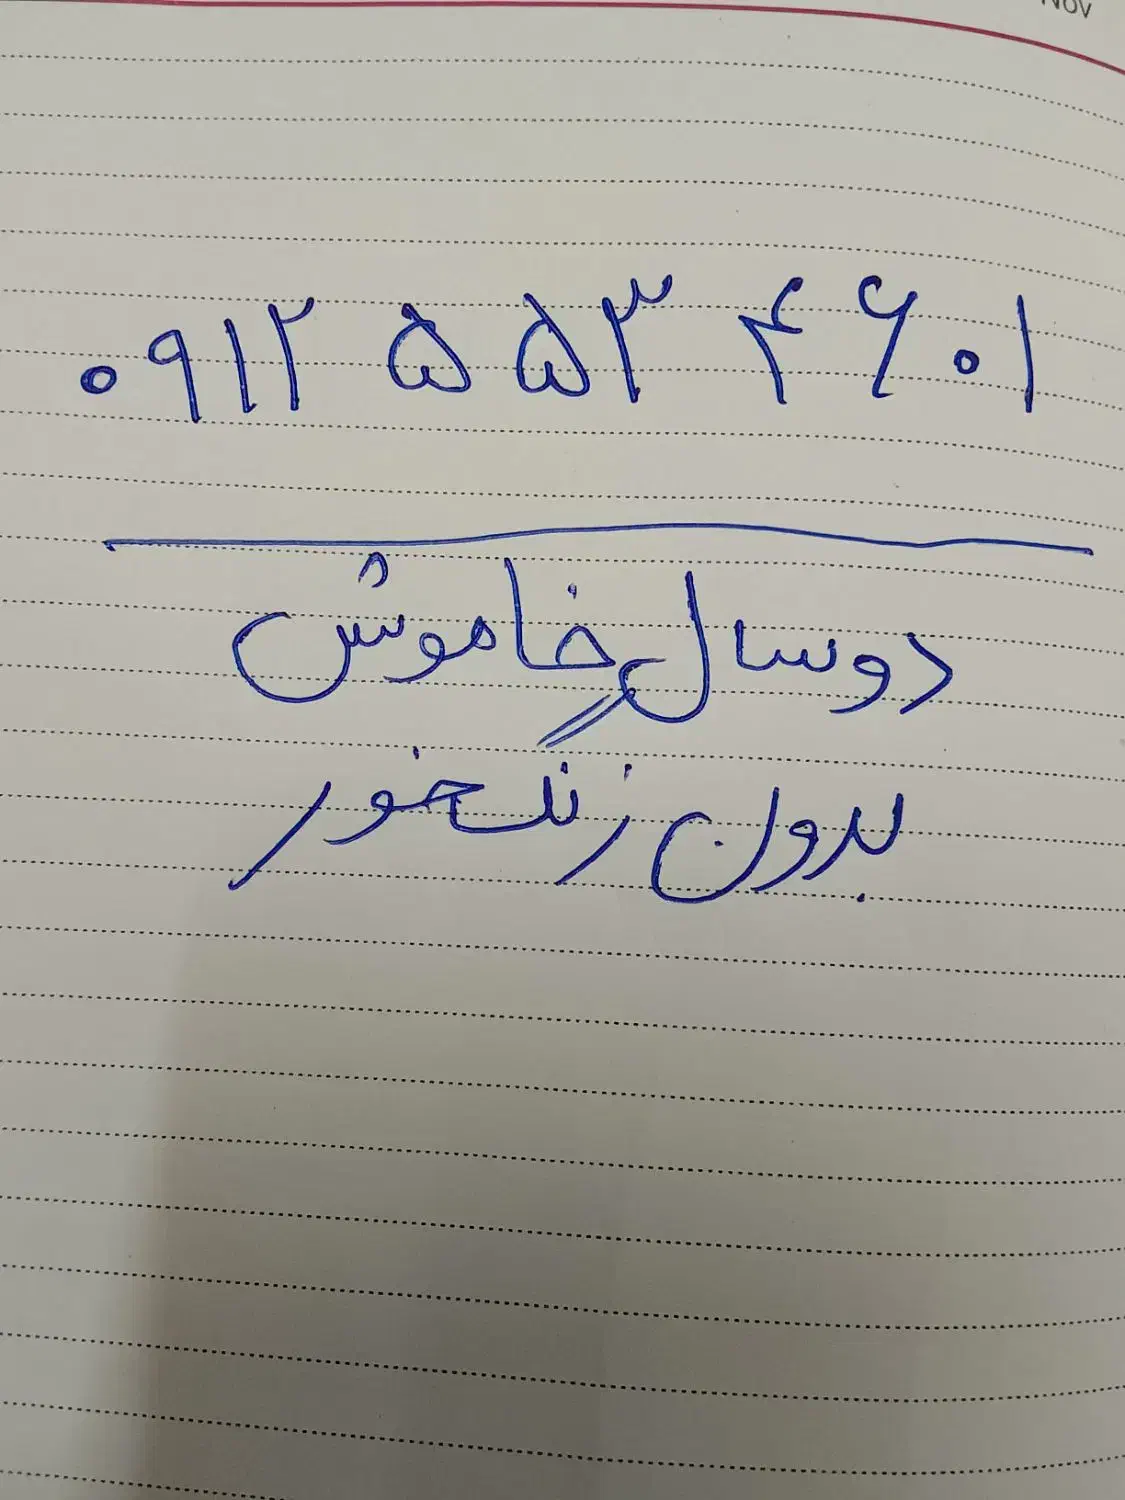 Nov
۰۹۱۲ ۵۵۳ ۴۶۰۱
دو سال خاموش
بدون زنگ خور